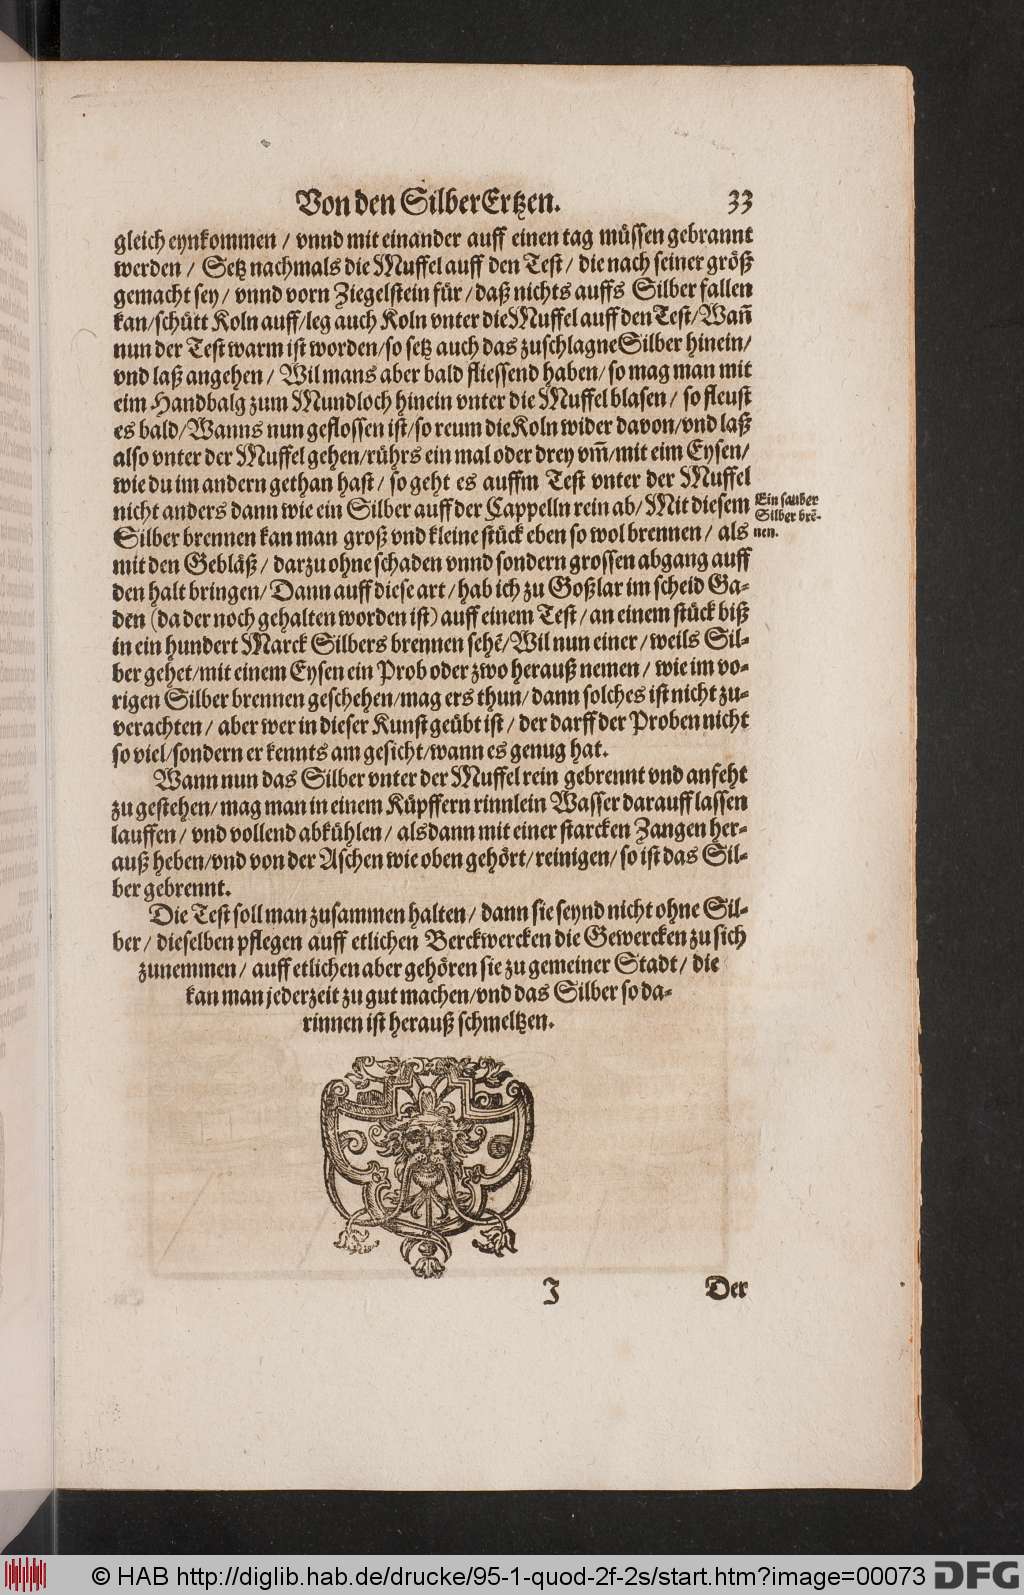 Von den SilberErtzen. 33
gleich eynkommen / vnnd mit einander auff einen tag müssen gebrannt
werden / Setz nachmals die Muffel auff den Test / die nach seiner größ
gemacht sey / vnnd vorn Ziegelstein für / daß nichts auffs Silber fallen
kan / schütt Koln auff / leg auch Koln vnter die Muffel auff den Test / Wañ
nun der Test warm ist worden / so setz auch das zuschlagne Silber hinein /
vnd laß angehen / Wil mans aber bald fliessend haben / so mag man mit
eim Handbalg zum Mundloch hinein vnter die Muffel blasen / so fleust
es bald / Wanns nun geflossen ist / so reum die Koln wider davon / vnd laß
also vnter der Muffel gehen / rührs ein mal oder drey vm̃ / mit eim Eysen /
wie du im andern gethan hast / so geht es auffm Test vnter der Muffel
nicht anders dann wie ein Silber auff der Cappelln rein ab / Mit diesem
Silber brennen kan man groß vnd kleine stück eben so wol brennen / als
mit den Gebläß / darzu ohne schaden vnnd sondern grossen abgang auff
den halt bringen / Dann auff diese art / hab ich zu Goßlar im scheid Ga-
dẽn (da der noch gehalten worden ist) auff einem Test / an einem stück biß
in ein hundert Marck Silbers brennen sehẽ / Wil nun einer / weils Sil-
ber gehet / mit einem Eysen ein Prob oder zwo herauß nemen / wie im vo-
rigen Silber brennen geschehen / mag ers thun / dann solches ist nicht zu-
verachten / aber wer in dieser Kunst geübt ist / der darff der Proben nicht
so viel / sondern er kennts am gesicht / wann es genug hat.
Ein sauber
Silber brẽ-
nen.
Wann nun das Silber vnter der Muffel rein gebrennt vnd anfeht
zu gestehen / mag man in einem Küpffern rinnlein Wasser darauff lassen
lauffen / vnd vollend abkühlen / alsdann mit einer starcken Zangen her-
auß heben / vnd von der Aschen wie oben gehört / reinigen / so ist das Sil-
ber gebrennt.
Die Test soll man zusammen halten / dann sie seynd nicht ohne Sil-
ber / dieselben pflegen auff etlichen Berckwercken die Gewercken zu sich
zunemmen / auff etlichen aber gehören sie zu gemeiner Stadt / die
kan man jederzeit zu gut machen / vnd das Silber so da-
rinnen ist herauß schmeltzen.
J Der
© HAB http://diglib.hab.de/drucke/95-1-quod-2f-2s/start.htm?image=00073 DFG